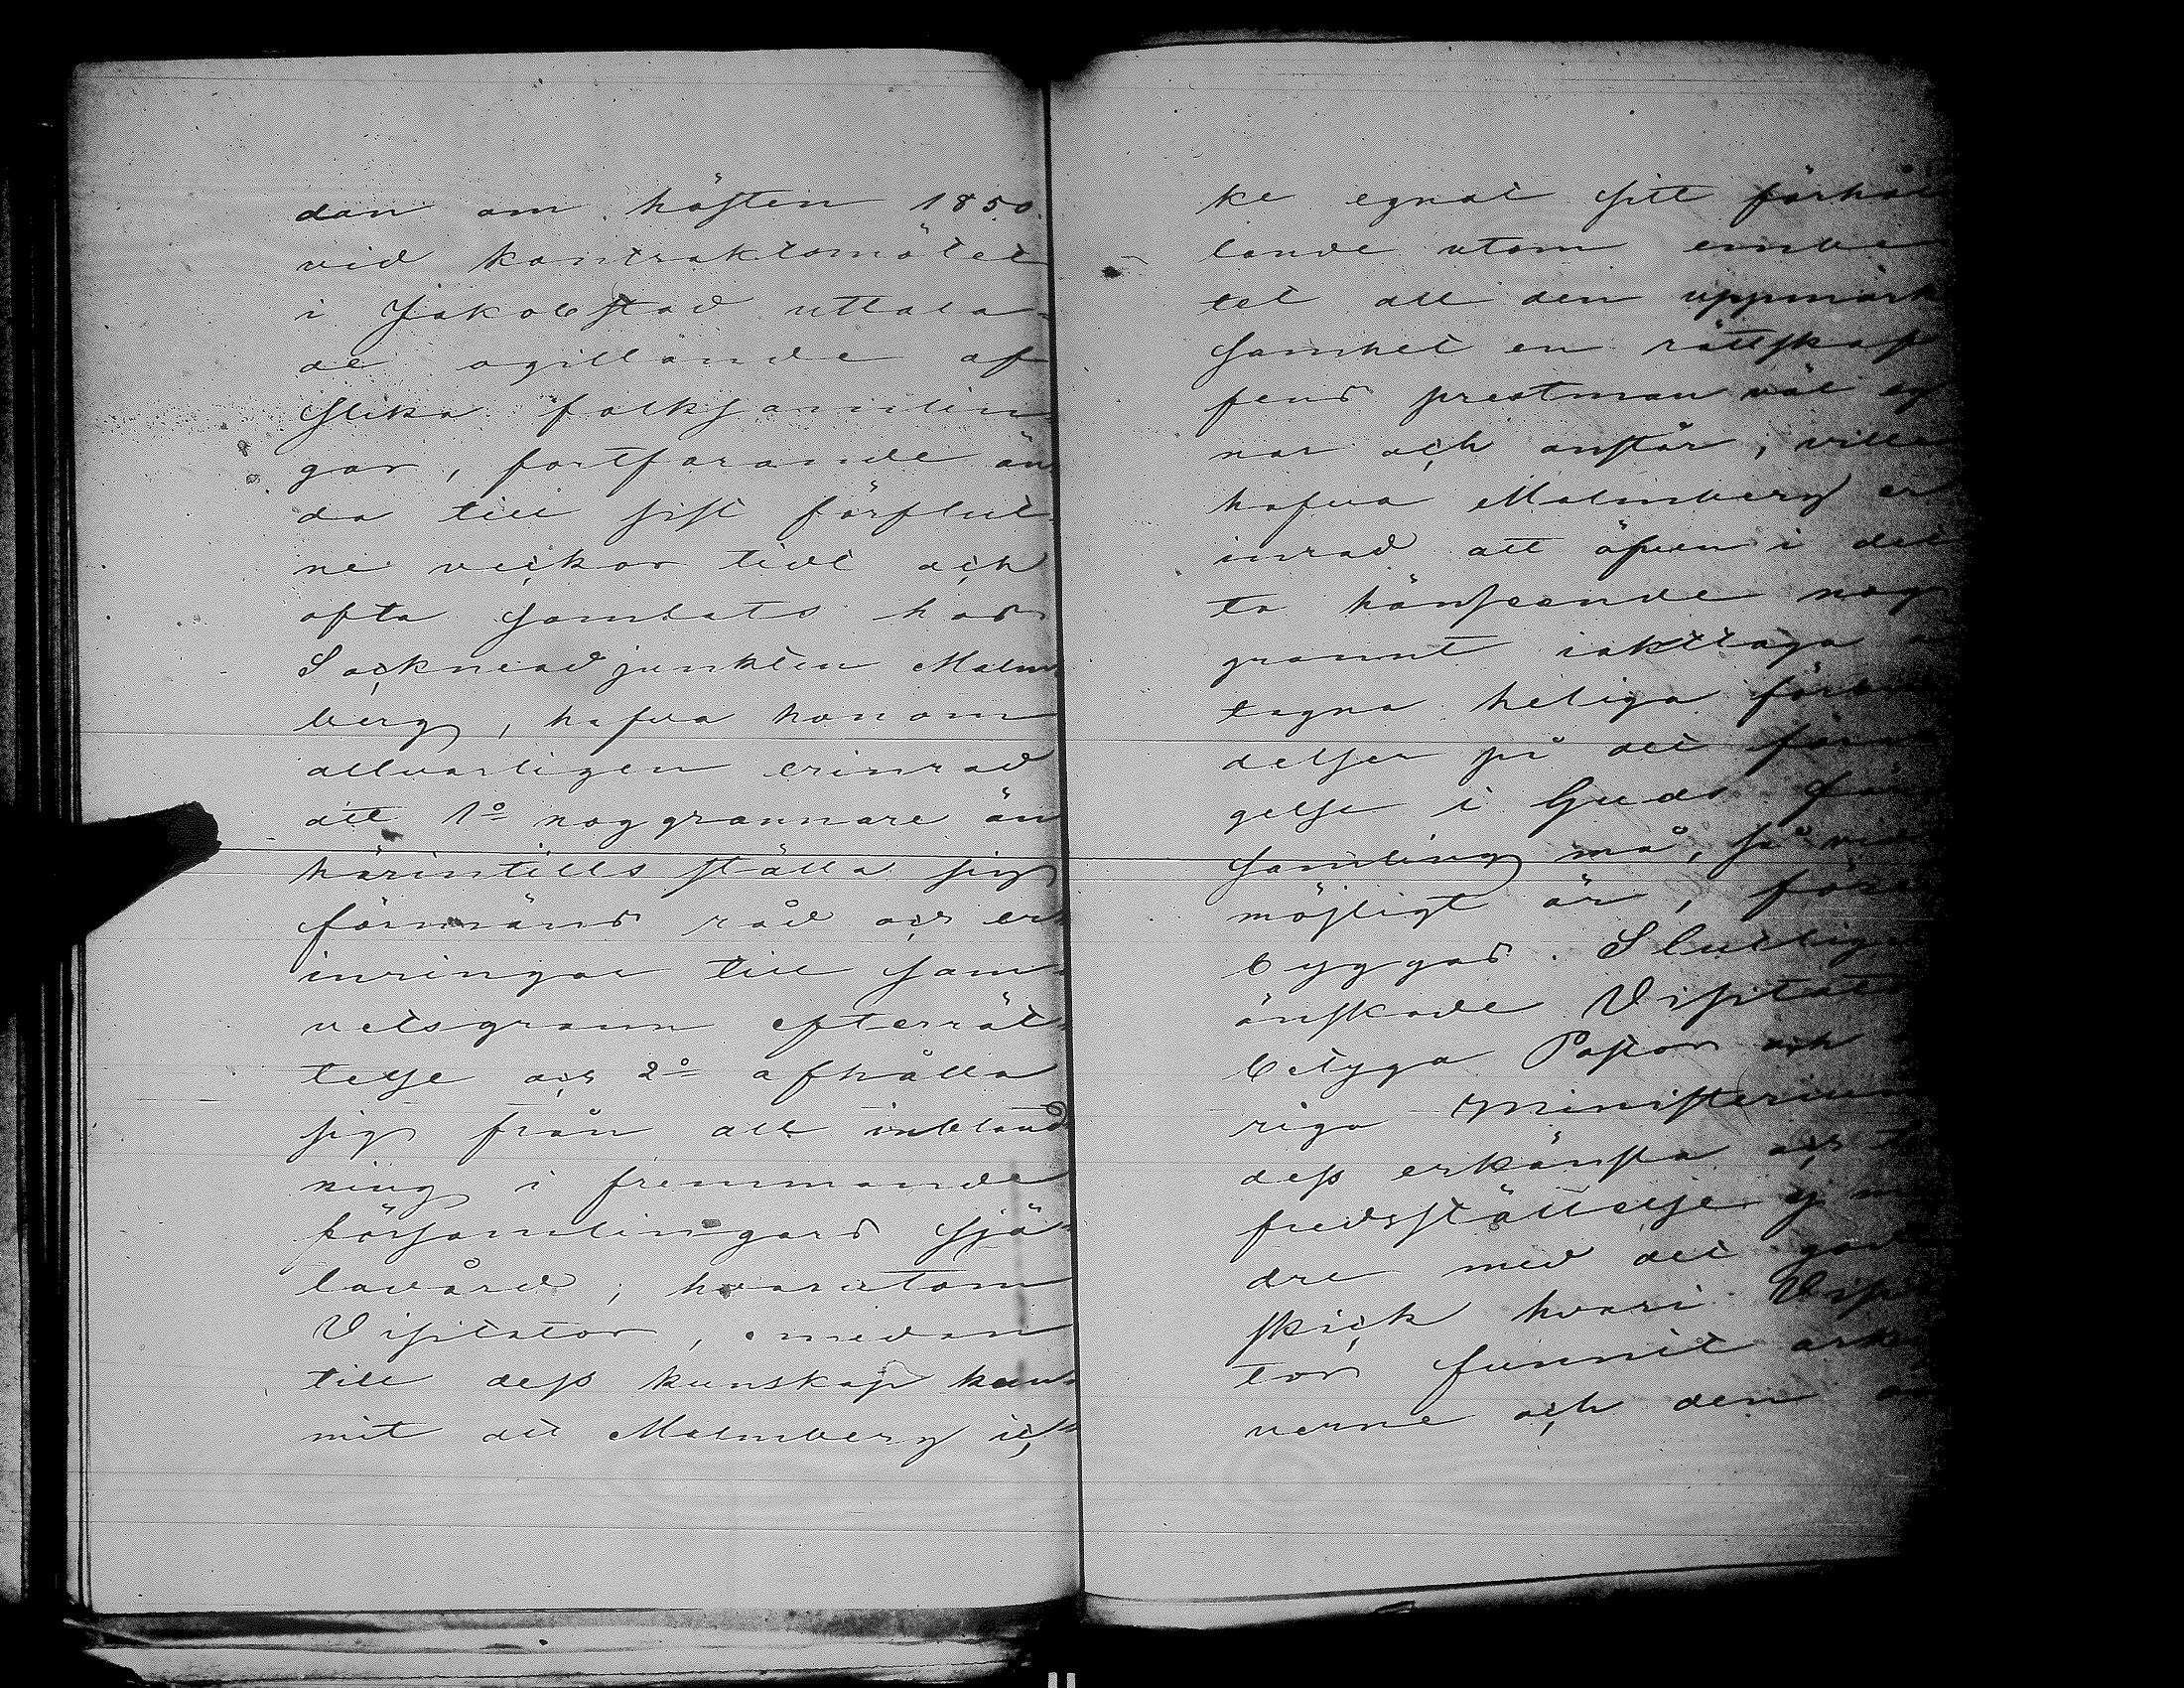 dan om hösten 1850
vid kontraktsmötet
i Jakobstad uttala-
de ogillande af
slika folksamlin
gar, fortfarande än
da till sist förflut
ne veckor tidt och
ofta samlats hos
Sockneadjunkten Malm
berg, hafva honom
allvarligen erinrad
att 1o noggrannare än
härintills ställa sig
förmäns råd och er
inringar till sam-
vetsgrann efterrät-
telse och 2o afhålla
sig från all inbland
ning i fremmande
församlingars sjä-
lavård; hvarutom
Visitator, medan
till dess kunskap kom-
mit att Malmberg ic
ke egnat sitt förhål
lande utom embe
tet all den uppmärk
samhet en rättskaf
fens prestman väl eg
nar och anstår, ville
hafva Malmberg er
inrad att äfven i det
ta hänseende nog
grannt iakttaga
tagna heliga förbin
delser på det förar
gelse i Guds för
samling må, så vidt
möjligt är, före
byggas. Slutligen
önskade Visitator
betyga Pastor och
riga Ministerium
dess erkänsla och
fredsställelse ej min
dre med det goda
skick hvari Visita
tor funnit arki
verne och den